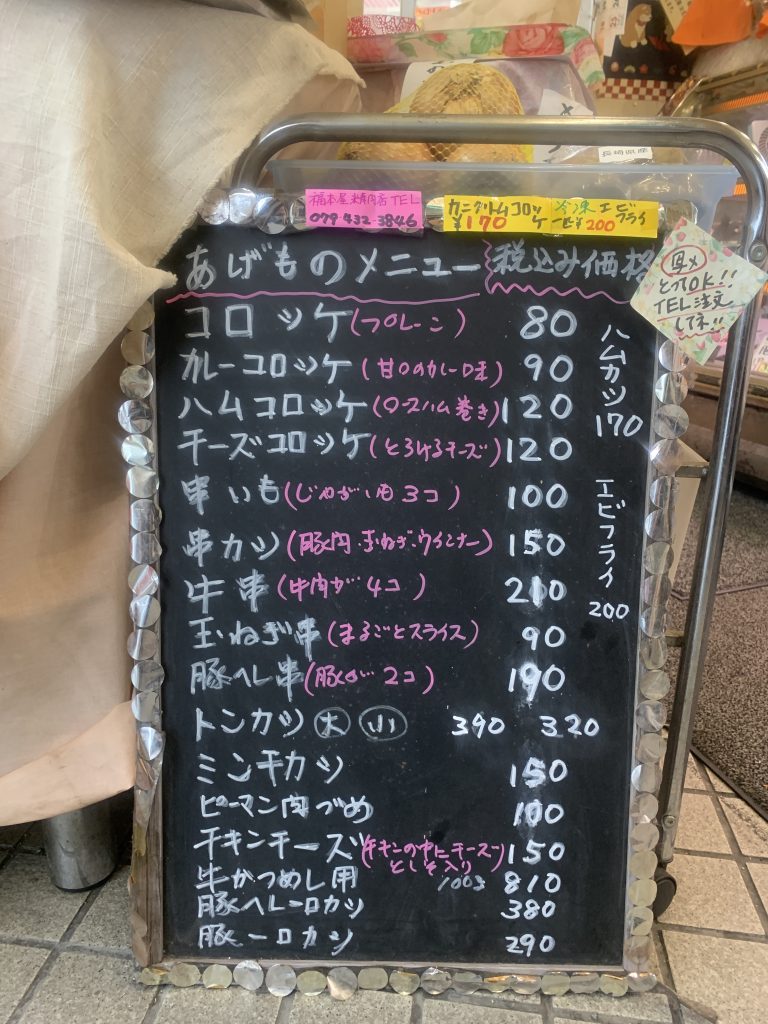 長崎県産
福本屋精肉店TEL
079-432-3846
カニグラトムコロッケ
¥170
冷凍エビフライ
一匹¥200
あげものメニュー 税込み価格
写メ
とってOK!!
TEL注文
してネ!!
コロッケ(プレーン) 80
カレーコロッケ(甘口のカレー味) 90
ハムコロッケ(ロースハム巻き) 120
チーズコロッケ(とろけるチーズ) 120
串いも(じゃがいも3コ) 100
串カツ(豚肉・玉ねぎ・ウインナー) 150
牛串(牛肉が4コ) 210
玉ねぎ串(まるごとスライス) 90
豚ヘレ串(豚が2コ) 190
トンカツ 大 小 390 320
ミンチカツ 150
ピーマン肉づめ 100
チキンチーズ(チキンの中にチーズとしそ入り) 150
牛かつめし用 100g 810
豚ヘレ一口カツ 380
豚一口カツ 290
ハムカツ 170
エビフライ 200